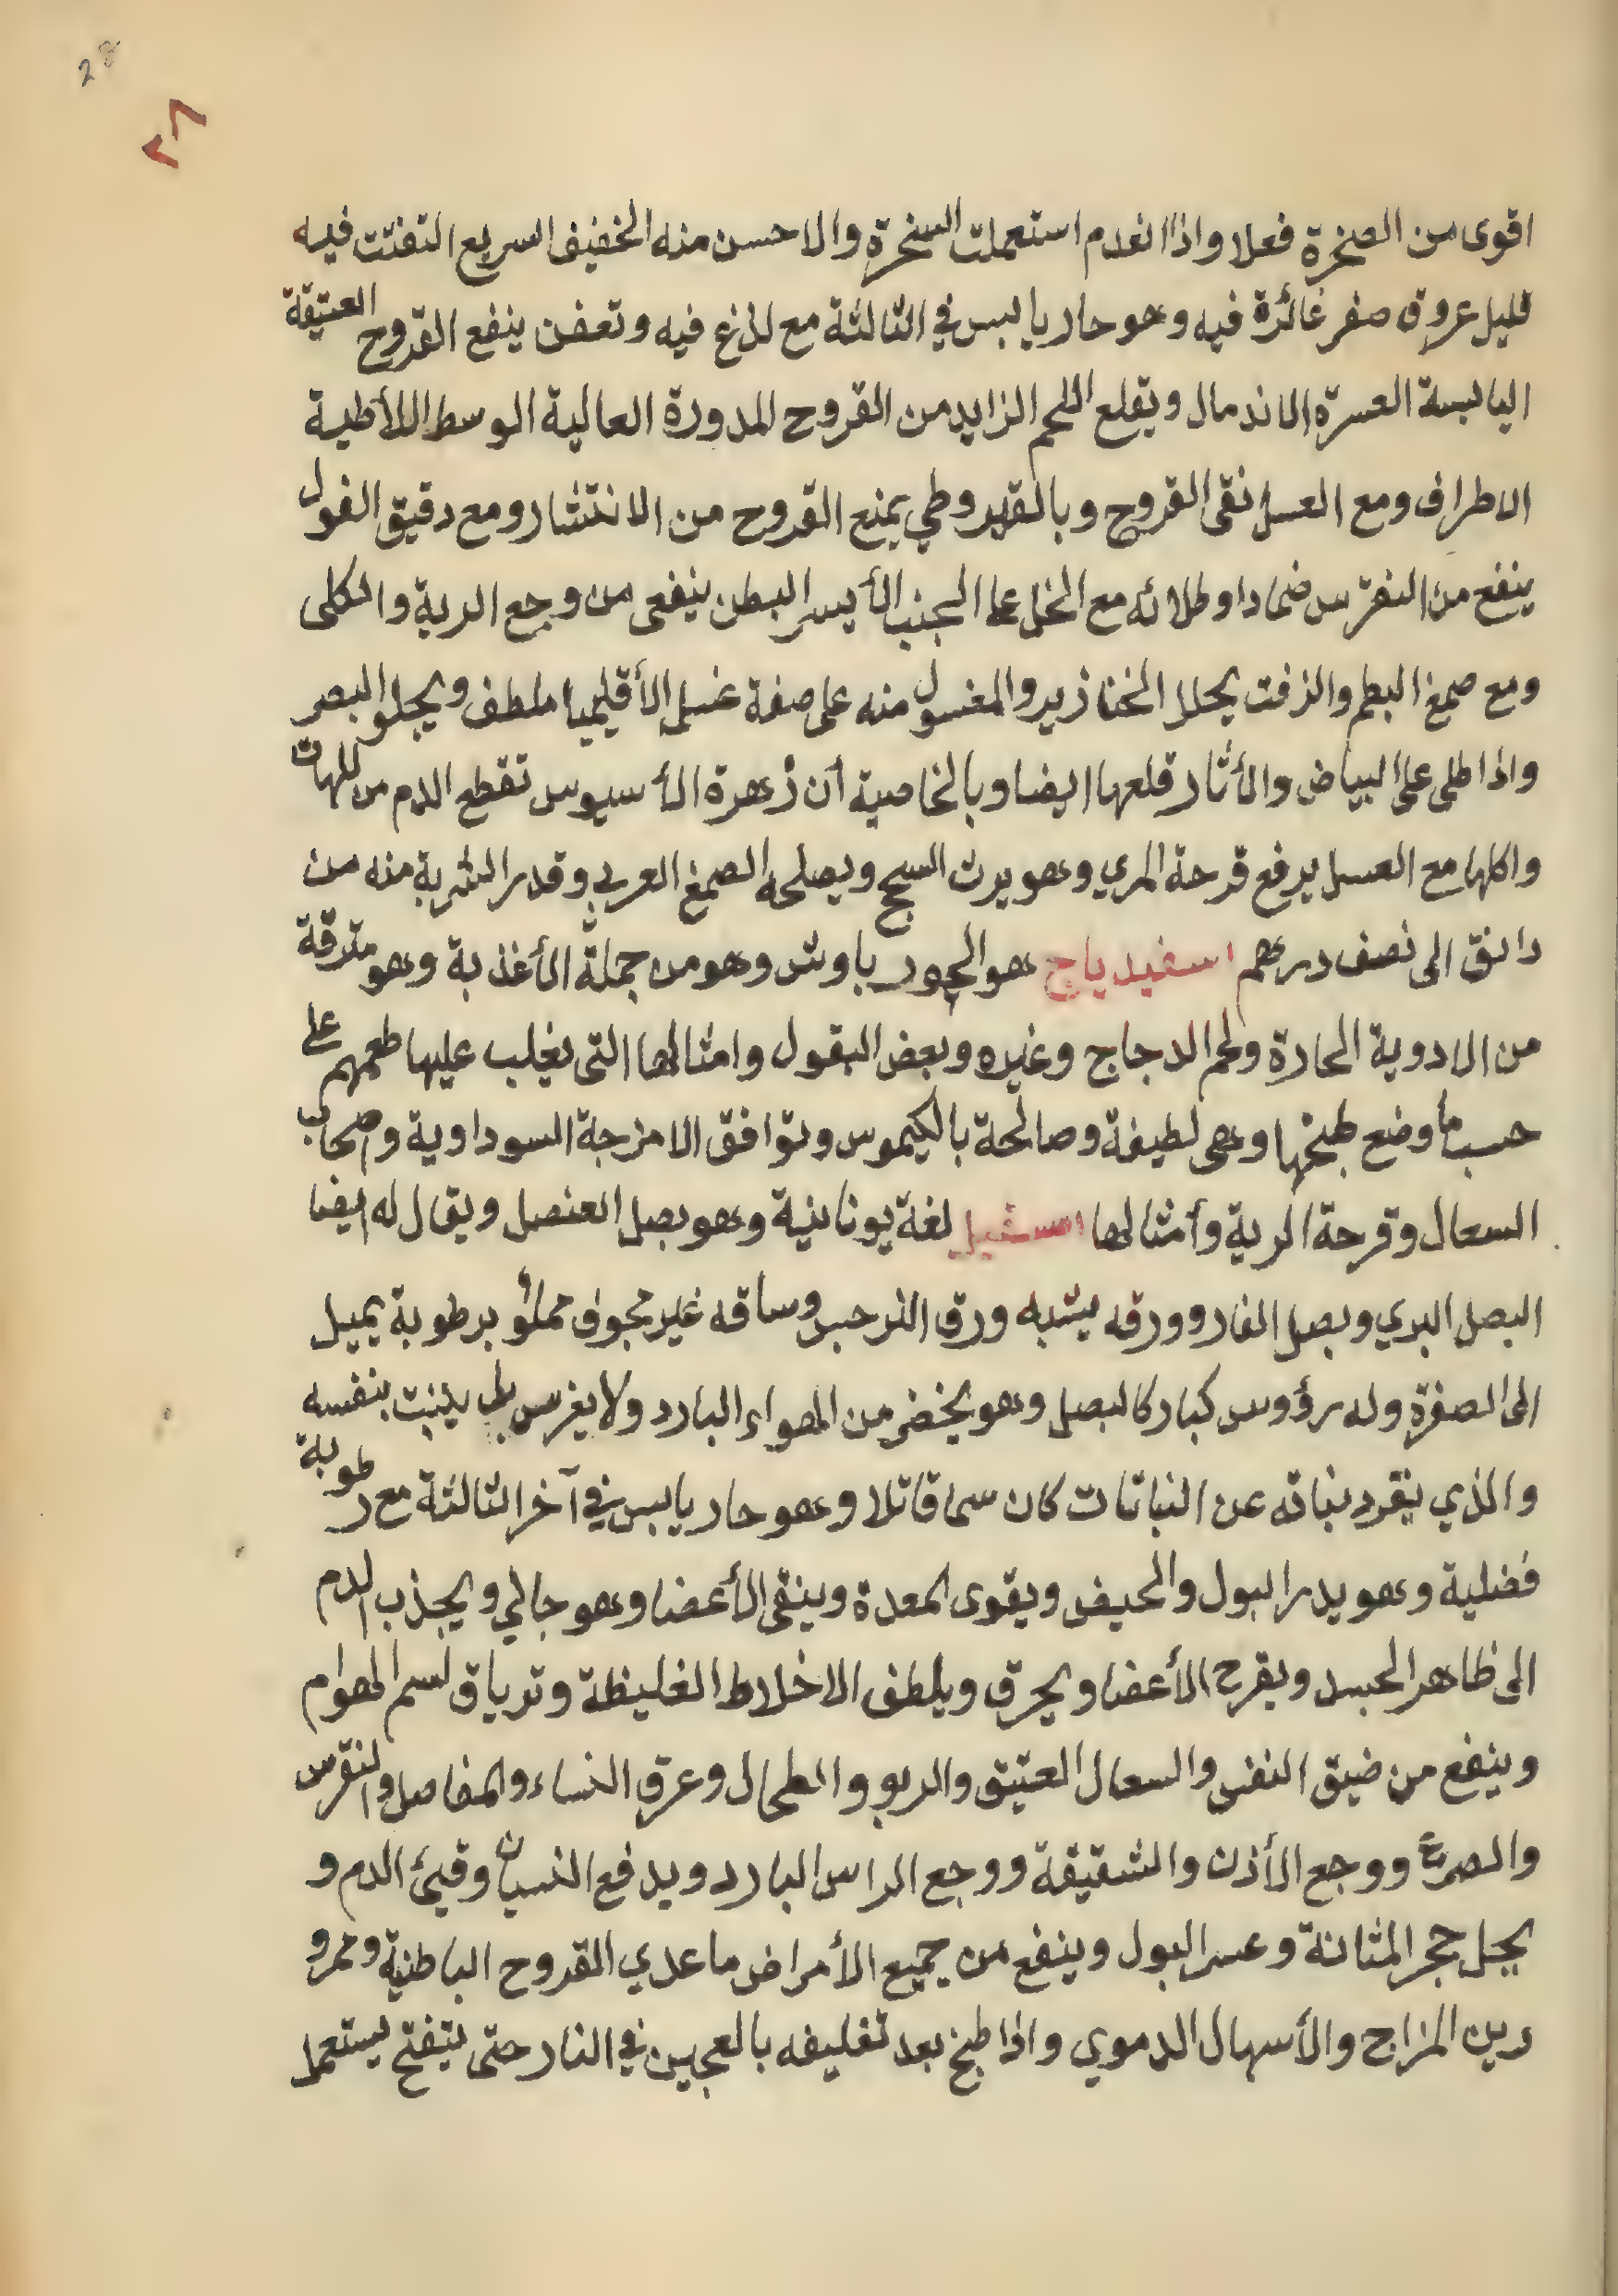 28
٢٨
اقوى من الصخرة فعلا واذا انعدم استعملت السخرة والاحسن منه الخفيف السريع التفتت فيه
قليل عروق صفر غائرة فيه وهو حار يابس في الثالثة مع لذع فيه وتعفن ينفع القروح العتيقة
اليابسة العسرة الاندمال ويقلع اللحم الزايد من القروح المدورة العالية الوسط اللأطية
الاطراف ومع العسل نقى القروح وبالقيروطي يمنع القروح من الانتشار ومع دقيق الفول
ينفع من النقرس ضمادا وطلائه مع الخل على الجنب الأيسر البطن ينفعى من وجع الرية والكلى
ومع صمغ البطم والزفت يحلل الخنازير والمغسول منه على صفة غسل الأقليميا ملطف ويجلو البصر
واذا طلى على البياض والأثار قلعها ايضا وبالخاصية أن زهرة الأسيوس تقطع الدم من اللهات
واكلها مع العسل يرفع قرحة المري وهو يرث السحج ويصلحه الصمغ العربي وقدر الشربة منه من
دانق الى نصف درهم اسفيدياج هو باوش وهو من جملة الأغذية وهو مترقة
من الادوية الحارة ولحم الدجاج وغيره وبعض البقول وامثالها التى يغلب عليها طعمهم على
حسب مأ وضع طبخها وهى لطيفة وصالحة بالكيموس وتوافق الامزجة السوداوية واصحاب
السعال وقرحة الرية وأمثالها اسقيل لغة يونانية وهو بصل العنصل ويقال له ايضا
البصل البري وبصل الفار وورقه يشبه ورق النرجس وساقه غير مجوف مملؤ برطوبة يميل
الى الصفرة وله رؤوس كبار كالبصل وهو يخضر من الهواء البارد ولا يغرس بل ينبت بنفسه
والذي ينفرد نباته عن النباتات كان سما قاتلا وهو حار يابس في آخر الثالثة مع رطوبة
فضلية وهو يدر البول والحيض ويقوى المعدة وينقى الأعضا وهو جالي ويجذب الدم
الى ظاهر الجسد ويقرح الأعضا ويحرق ويلطف الاخلاط الغليظة وترياق لسم الهوام
وينفع من ضيق النفس والسعال العتيق والربو والطحال وعرق النساء والمفاصل والنقرس
والصرع ووجع الأذن والشقيقة ووجع الراس البارد ويدفع النسيان وقيئ الدم و
يحل حجر المثانة وعسر البول وينفع من جميع الأمراض ماعدي القروح الباطنية ومحرو
رين المزاج والأسهال الدموي واذا طبخ بعد تغليفه بالعجين في النار حتى يتفتح يستعمل